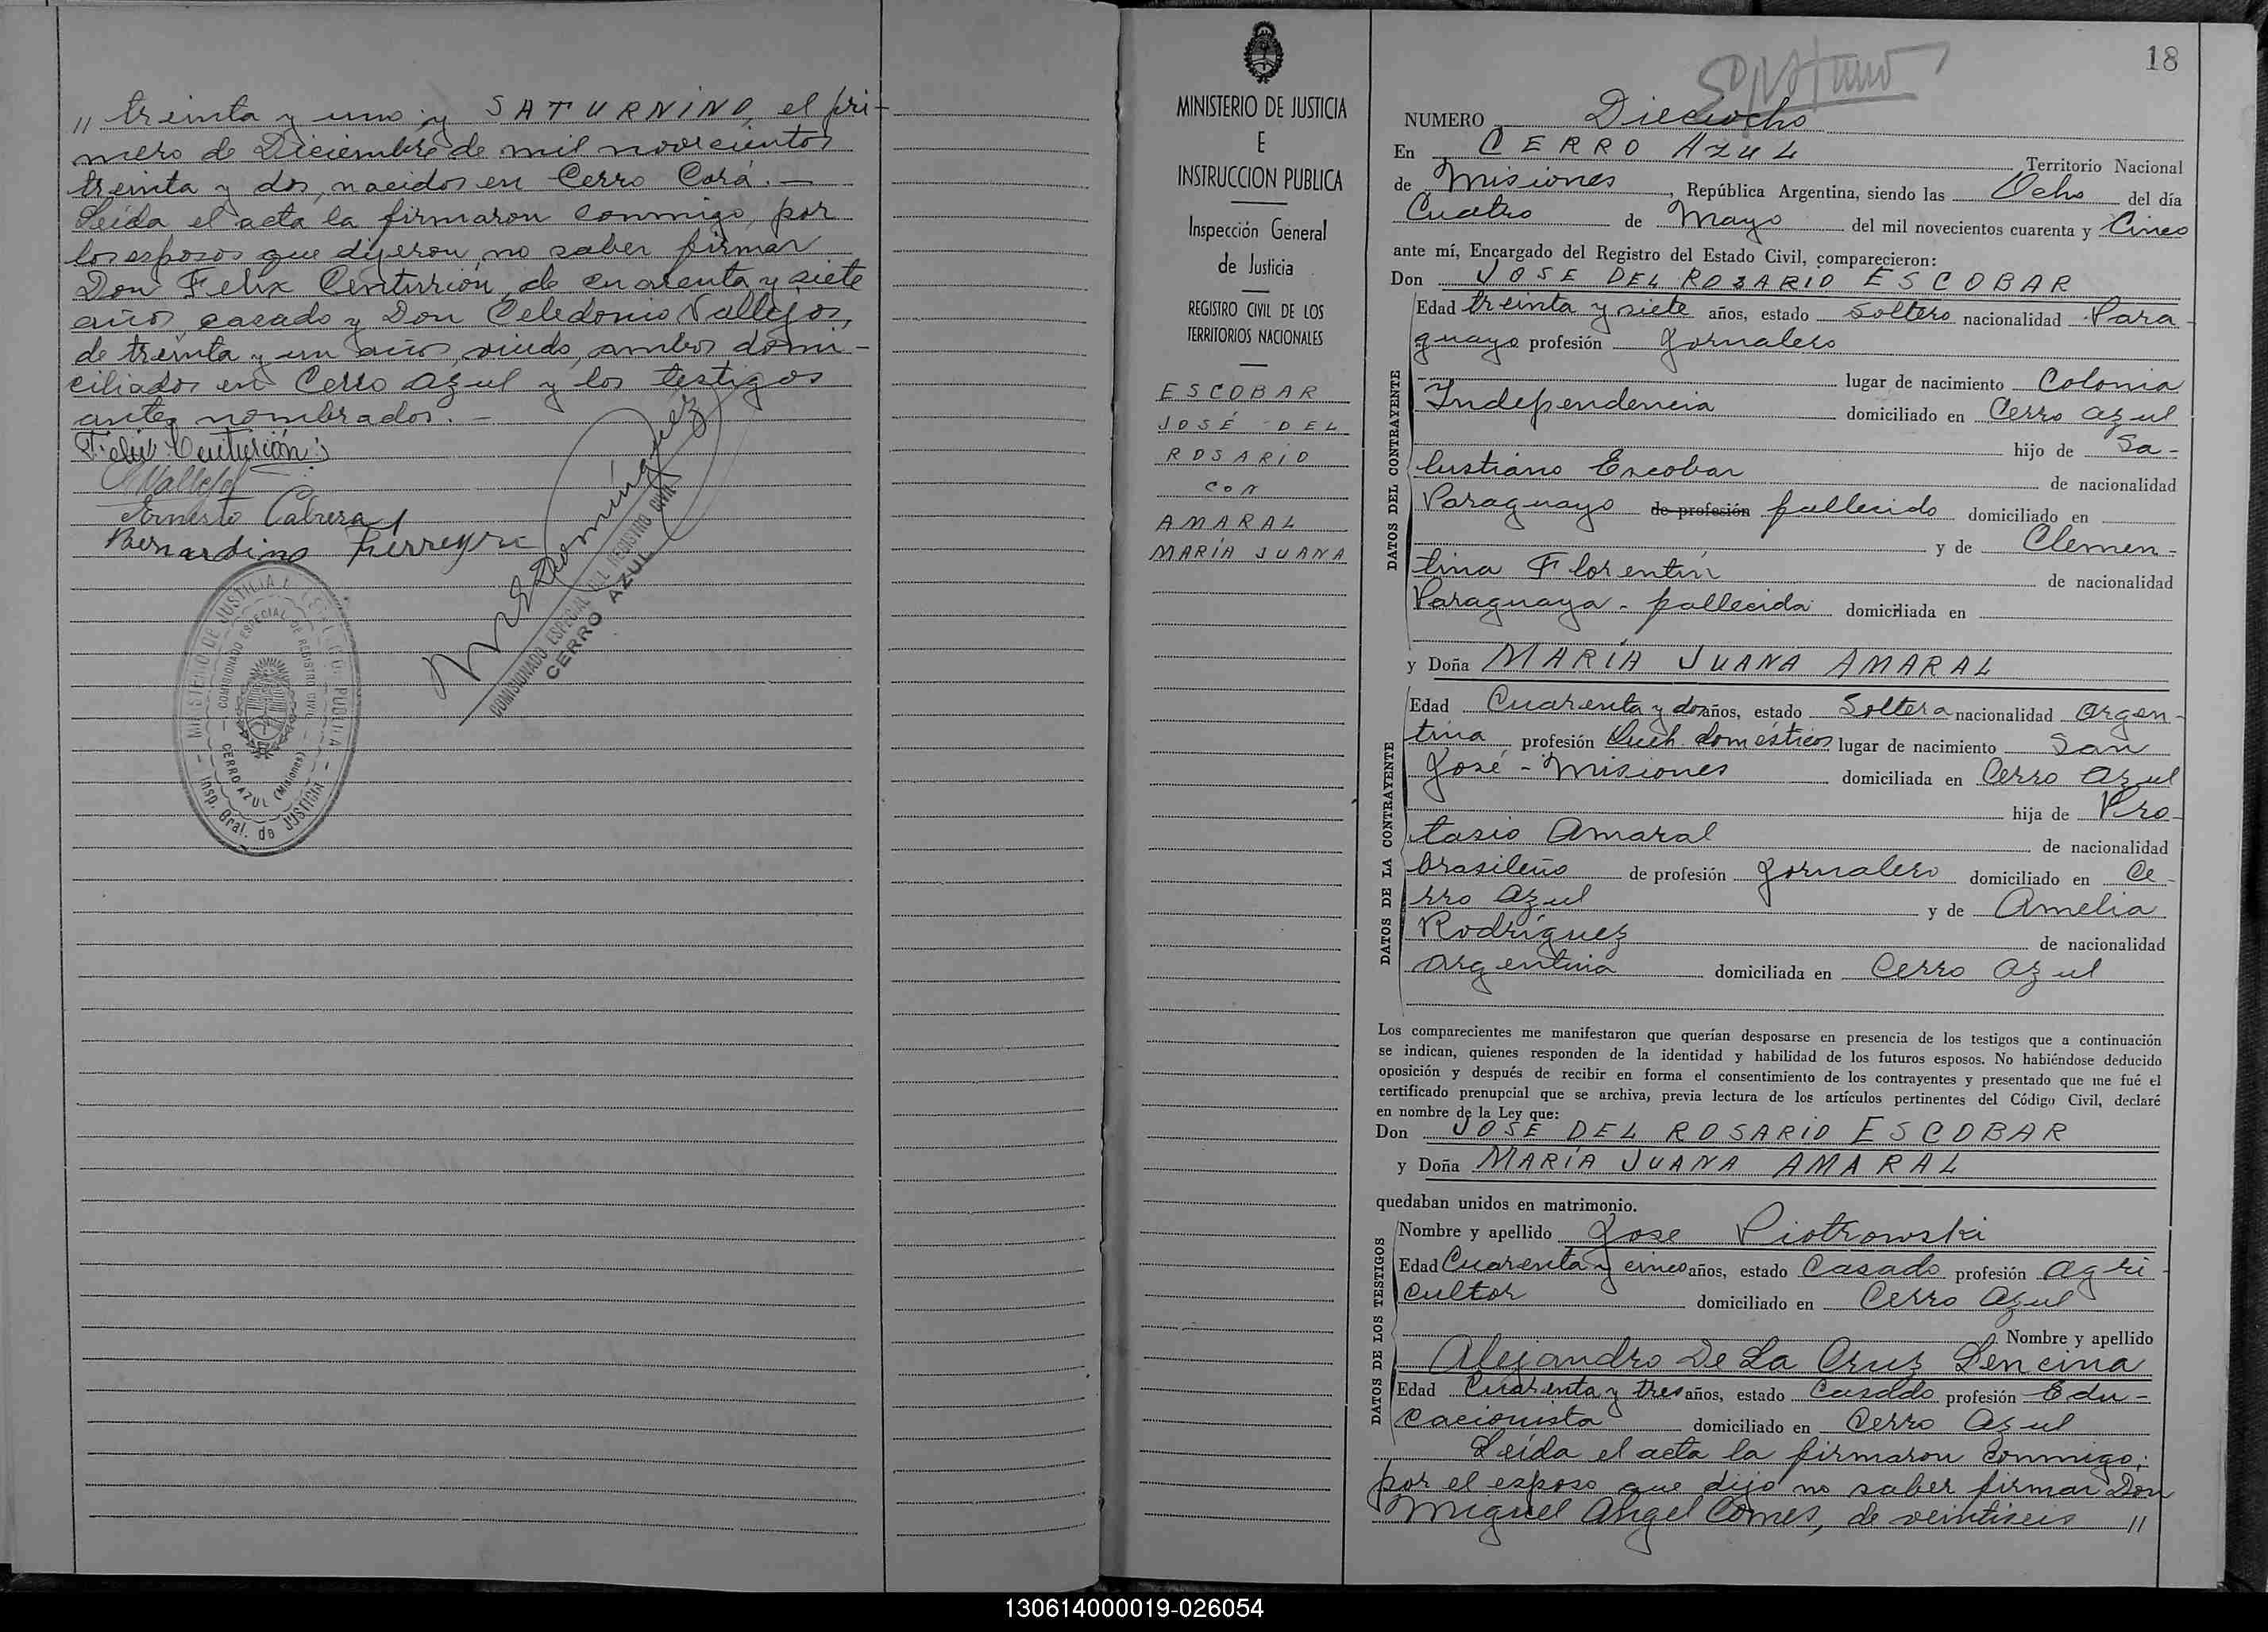 " treinta y uno; y SATURNINO, el pri-
mero de Diciembre de mil novecientos
treinta y dos, nacidos en Cerro Corá.—
Leída el acta la firmaron conmigo, por
los esposos que dijeron no saber firmar
Don Felix Centurión, de cuarenta y siete
años, casado y Don Celedonio Vallejos,
de treinta y un años, viudo, ambos domi-
ciliados en Cerro Azul y los testigos
antes nombrados.—
Felix Centurión
Vallejos
Ernesto Cabrera
Bernardino Fierreyra
COMISIONADO ESPECIAL DEL REGISTRO CIVIL
CERRO AZUL
MINISTERIO DE JUSTICIA E PUBLICA
Insp. Gral. de JUSTICIA
COMISIONADO ESPECIAL DE REGISTRO CIVIL
CERRO AZUL (Misiones)
MINISTERIO DE JUSTICIA
E
INSTRUCCION PUBLICA
Inspección General
de Justicia
REGISTRO CIVIL DE LOS
TERRITORIOS NACIONALES
ESCOBAR
JOSÉ DEL
ROSARIO
CON
AMARAL
MARÍA JUANA
18
NUMERO Dieciocho
En CERRO AZUL Territorio Nacional
de Misiones, República Argentina, siendo las Ocho del día
Cuatro de Mayo del mil novecientos cuarenta y Cinco
ante mí, Encargado del Registro del Estado Civil, comparecieron:
Don JOSE DEL ROSARIO ESCOBAR
DATOS DEL CONTRAYENTE
Edad treinta y siete años, estado soltero nacionalidad Para-
guayo profesión Jornalero
lugar de nacimiento Colonia
Independencia domiciliado en Cerro Azul
hijo de Sa-
lustiano Escobar de nacionalidad
Paraguayo de profesión fallecido domiciliado en
y de Clemen-
tina Florentín de nacionalidad
Paraguaya - fallecida domiciliada en
y Doña MARÍA JUANA AMARAL
DATOS DE LA CONTRAYENTE
Edad Cuarenta y dos años, estado Soltera nacionalidad Argen-
tina profesión Queh. domésticos lugar de nacimiento San
José - Misiones domiciliada en Cerro Azul
hija de Pro-
tasio Amaral de nacionalidad
brasileño de profesión Jornalero domiciliado en Ce-
rro Azul y de Amelia
Rodríguez de nacionalidad
argentina domiciliada en Cerro Azul
Los comparecientes me manifestaron que querían desposarse en presencia de los testigos que a continuación
se indican, quienes responden de la identidad y habilidad de los futuros esposos. No habiéndose deducido
oposición y después de recibir en forma el consentimiento de los contrayentes y presentado que me fué el
certificado prenupcial que se archiva, previa lectura de los artículos pertinentes del Código Civil, declaré
en nombre de la Ley que:
Don JOSE DEL ROSARIO ESCOBAR
y Doña MARÍA JUANA AMARAL
quedaban unidos en matrimonio.
DATOS DE LOS TESTIGOS
Nombre y apellido Jose Piotrowski
Edad Cuarenta y cinco años, estado Casado profesión Agri-
cultor domiciliado en Cerro Azul
Nombre y apellido
Alejandro De La Cruz Lencina
Edad Cuarenta y tres años, estado Casado profesión Edu-
cacionista domiciliado en Cerro Azul
Leída el acta la firmaron conmigo;
por el esposo que dijo no saber firmar Don
Miguel Angel Comes, de veintiseis "
130614000019-026054